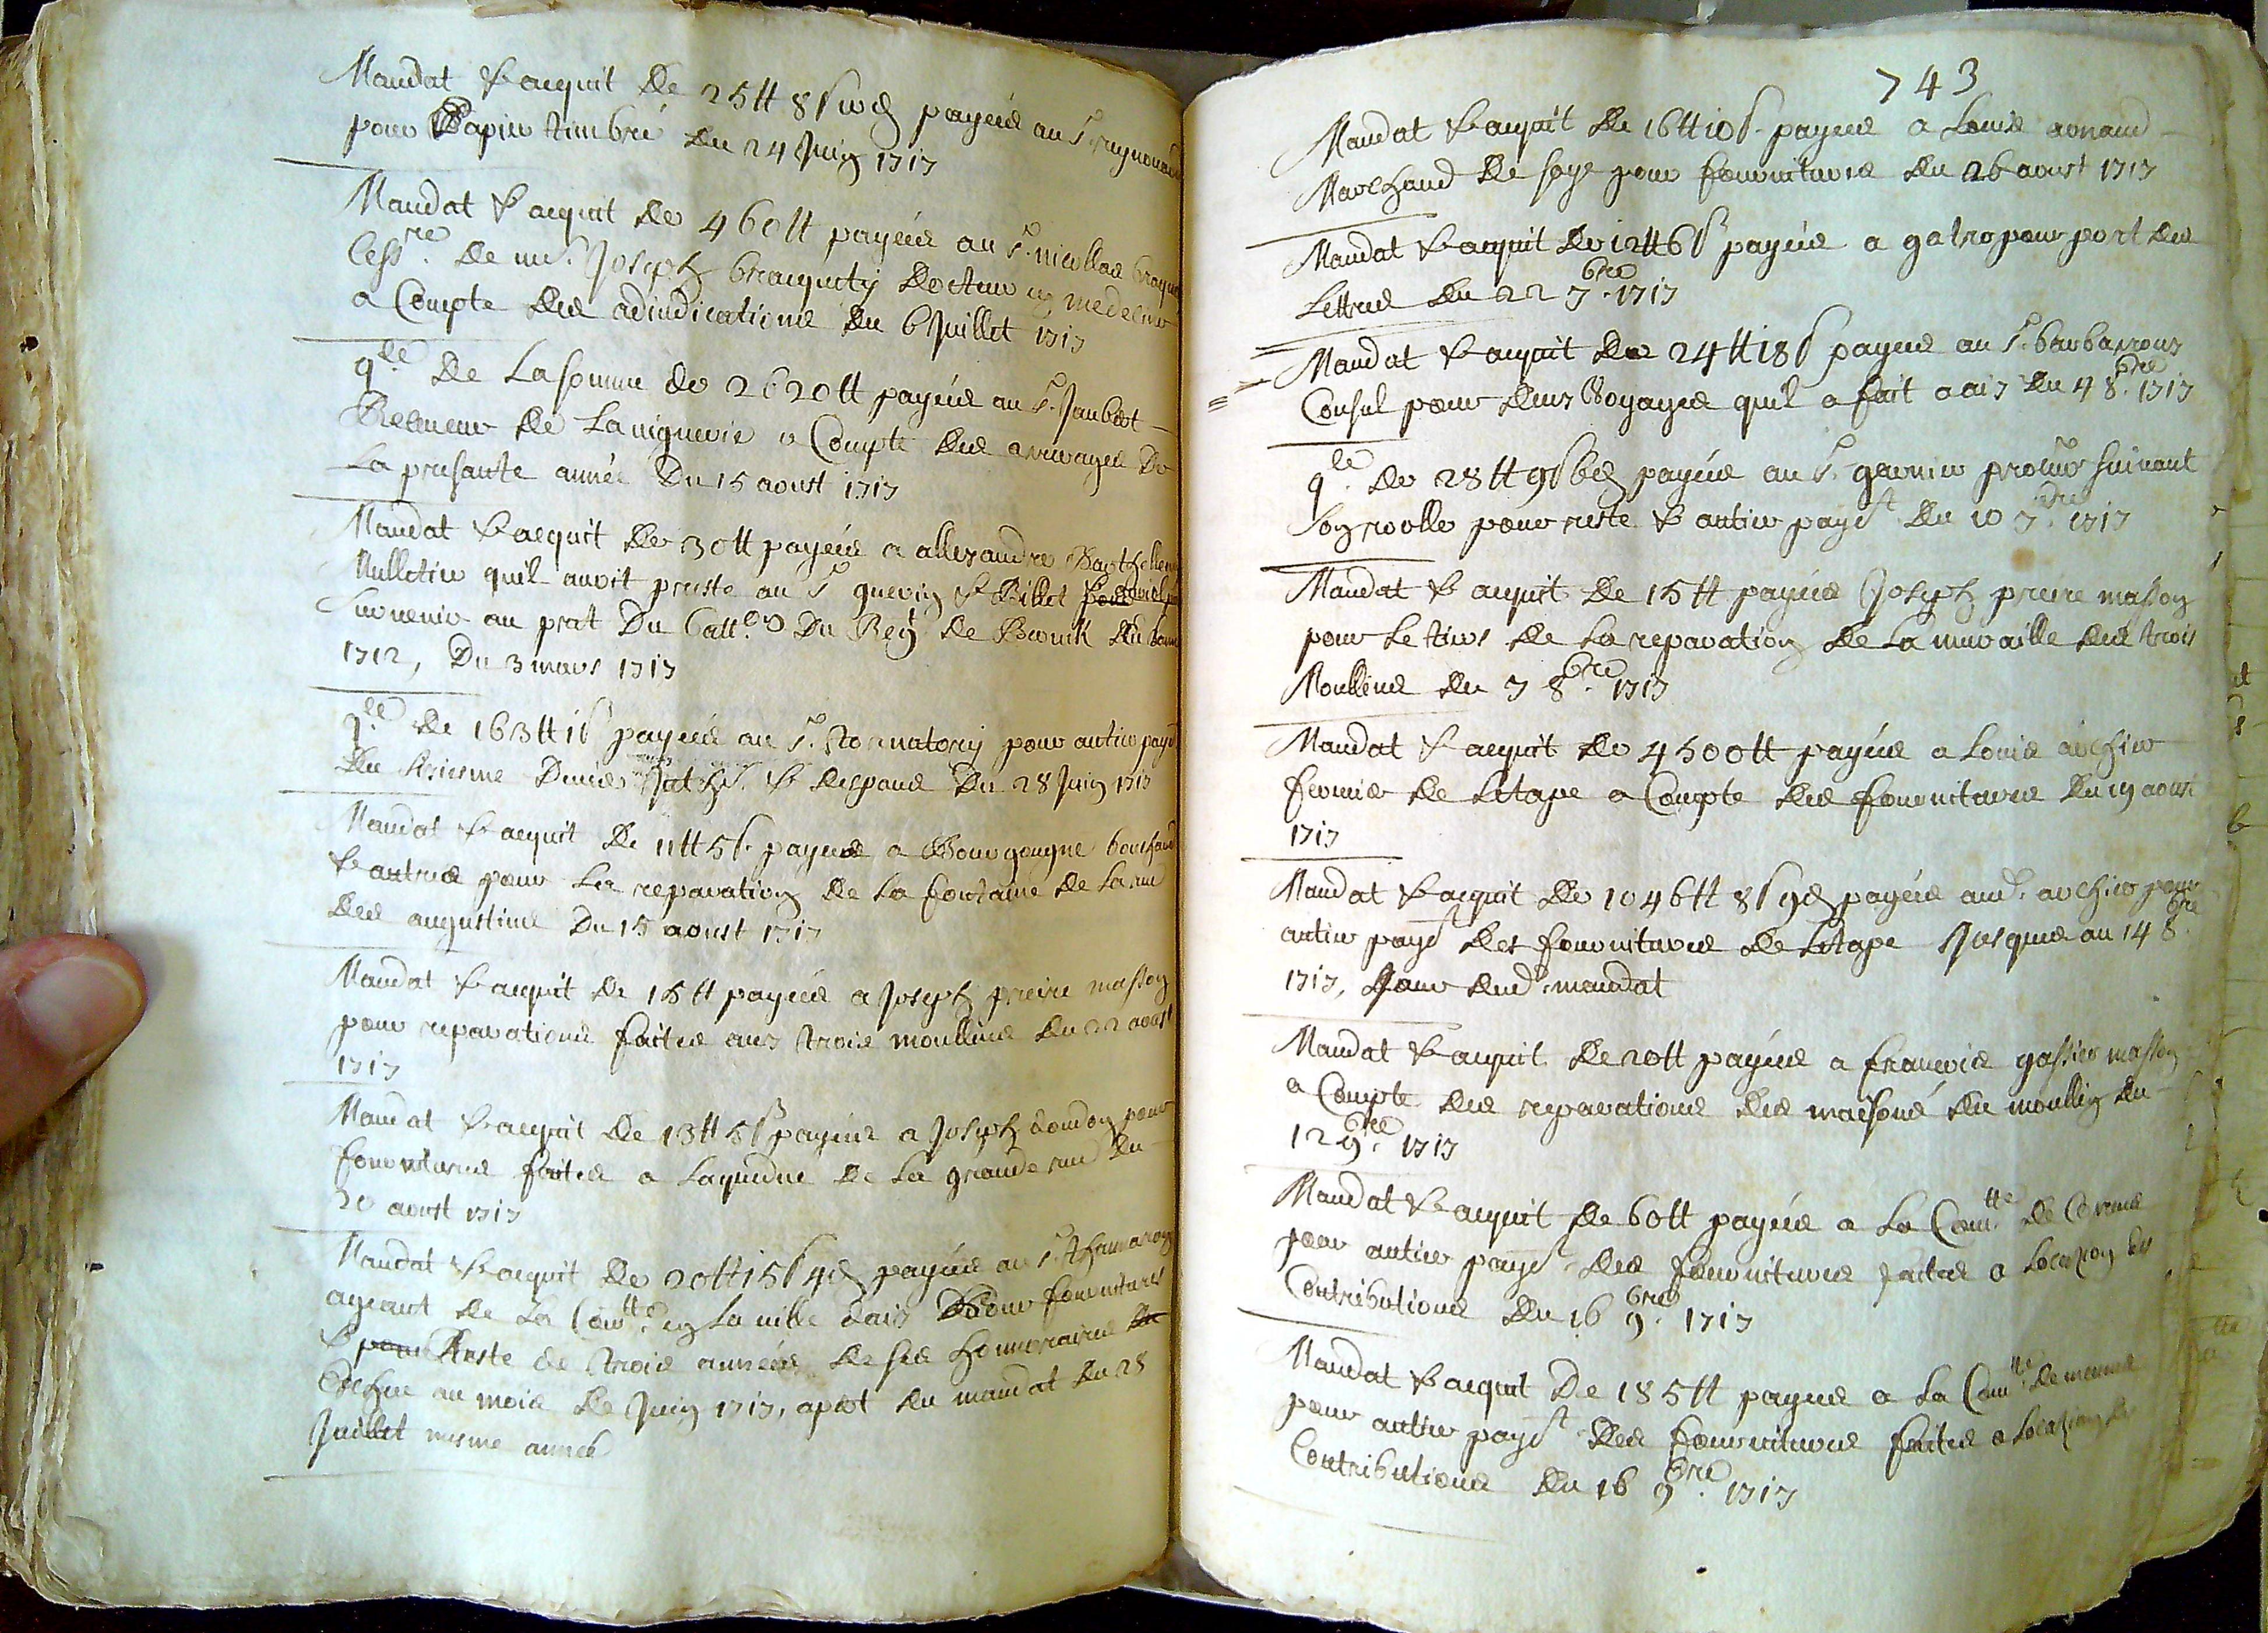 Mandat & acquit de 25tt 8s 10d payées au Sr
pour Papier timbré du 24 Juin 1717
Mandat & acquit de 460tt payées au Sr nicollas
Cessre de mr Joseph bracquety docteur en medecine
a Compte des adiudications du 6 Juillet 1717
qce de La somme de 2620tt payées au Sr Jaubert
Receveur de La viguerie a Compte des arreirages de
La presante année Du 15 aoust 1717
Mandat & acquit de 30tt payées a allexandre Barthellemy
Mulletier quil avoit preste au Sr guerin & Billet
Survenir au prat Du batton Du Regt de Berwik du
1712, Du 3 mars 1717
qce De 163tt 1s payées au Sr pour antier payt
du Du 28 Juin 1717
Mandat & acquit de 11tt 5s payées a Bourgougne
& autres pour La reparation de la fontaine de La rue
des augustins Du 15 aoust 1717
Mandat & acquit de 15tt payées a Joseph preire masson
pour reparations faites aux trois moullins du 22 aoust
1717
Mandat & acquit de 13tt 5s payées a Joseph pour
fournitures faites a Laqueduc de La grande rue du
20 aoust 1717
Mandat & acquit de 20tt 15s 4d payées au Sr
ageant de La Comtté en La ville daix Pour fournitures
& pour Reste de trois années de ses honnoraires du
Escheu au mois de Juin 1717, apert du mandat du 28
Juillet mesme année
743
Mandat & acquit de 16tt 10s payées a Louis arnaud
Marchand de soye pour fournitures du 26 aoust 1717
Mandat & acquit de 12tt 6s payées a gatro pour port des
Lettres du 22 7bre 1717
Mandat & acquit de 24tt 18s payées au Sr barbarroux
Consul pour deux Voyages quil a fait a aix du 4 8bre 1717
qce de 28tt 9s 6d payées au Sr garnier procur suivant
son rolle pour reste & antier payt du 10 7bre 1717
Mandat & acquit de 15tt payées Joseph preire masson
pour Le tiers de La reparation de La muraille des trois
Moullins du 7 8bre 1717
Mandat & acquit de 4500tt payées a Louis archier
fermier de Letape a Compte des fournitures du 19 aoust
1717
Mandat & acquit de 1046tt 8s 9d payées aud. archier pour
antier payt des fournitures de Letape Jusques au 14 8bre
1717, Jour dud. mandat
Mandat & acquit de 20tt payées a francois gassier masson
a Compte des reparations des maisons du moullin du
12 9bre 1717
Mandat & acquit de 60tt payées a La Comtté de
pour antier payt des fournitures faites a Locasion des
Contributions du 16 9bre 1717
Mandat & acquit De 185tt payées a La Comtté de
pour antier payt des fournitures faites a Locasion des
Contributions du 16 9bre 1717